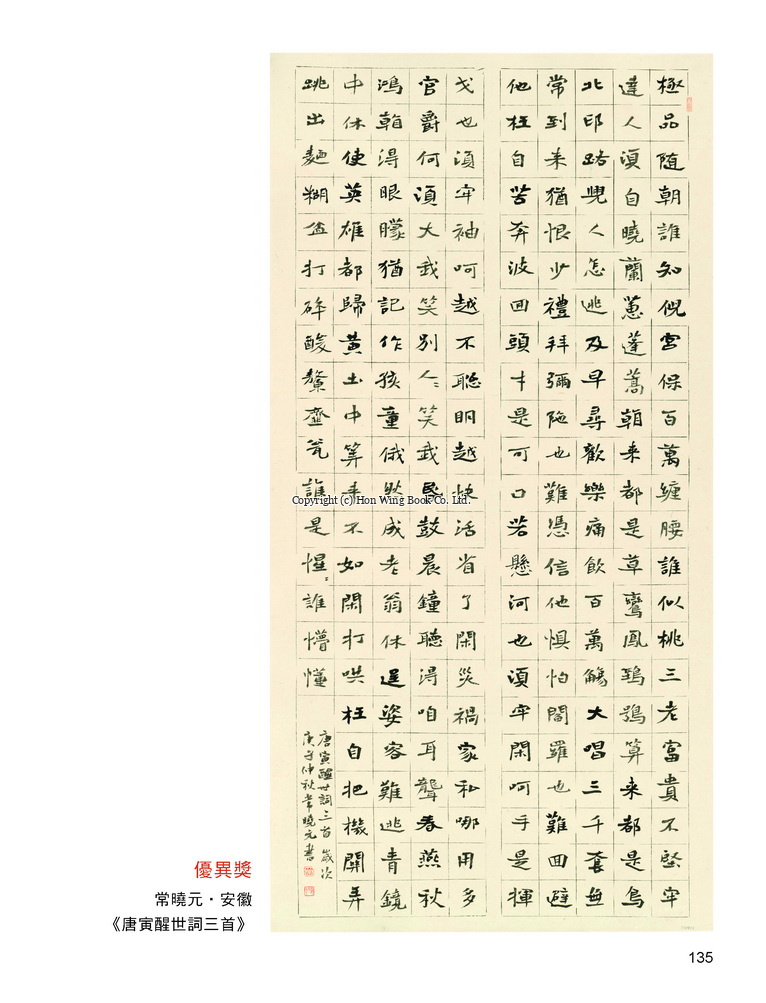 極品随朝誰知倪宮保百萬纏腰誰似桃三老富貴不堅牢
達人湏自曉蘭蕙蓬蒿朝来都是草鸞鳳鴟鴞算来都是鳥
北邙路兒人怎逃及早尋歡樂痛飲百萬觴大唱三千套無
常到来猶恨少禮拜彌陁也難憑信他懼怕閻羅也難回避
他枉自苦奔波回頭才是可口若懸河也湏牢閑呵手是揮
戈也湏牢袖呵越不聰明越快活省了閑災禍家私哪用多
官爵何湏大我笑別人々笑我昬鼓晨鐘聽淂咱耳聾春燕秋
鴻看淂眼朦猶記作孩童俄然成老翁休逞姿容難逃青鏡
中休使英雄都歸黃土中算来不如閑打哄枉自把機關弄
跳出麵糊盆打碎酸鏊齏瓮誰是惺々誰懵懂
唐寅醒世詞三首歲次
庚子仲秋常曉元書
Copyright (c) Hon Wing Book Co. Ltd.
優異獎
常曉元・安徽
《唐寅醒世詞三首》
135